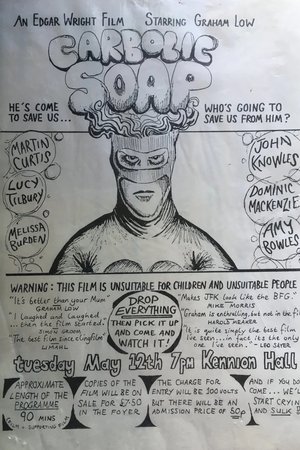 AN EDGAR WRIGHT FILM STARRING GRAHAM LOW
CARBOLIC
SOAP
HE'S COME
TO SAVE US...
WHO'S GOING TO
SAVE US FROM HIM?
MARTIN
CURTIS
LUCY
TILBURY
MELISSA
BURDEN
JOHN
KNOWLES
DOMINIC
MACKENZIE
AMY
BOWLES
WARNING: THIS FILM IS UNSUITABLE FOR CHILDREN AND UNSUITABLE PEOPLE
"It's better than your Mum"
GRAHAM LOW
"I laughed and laughed...
...then the film started."
SIMON
"The best film since clingfilm"
LIMAHL
DROP
EVERYTHING
THEN PICK IT UP
AND COME AND
WATCH IT!
"Makes JFK look like the BFG."
MIKE MORRIS
"Graham is enthralling, but not in the film"
HAROLD
"It is quite simply the best film
I've seen... in fact it's the only
one I've seen." - LEO SAYER
tuesday May 12th 7pm Kennion Hall
APPROXIMATE
LENGTH OF THE
PROGRAMME
90 MINS
FILM + SUPPORTING FILM
COPIES OF THE
FILM WILL BE ON
SALE FOR £7.50
IN THE FOYER
THE CHARGE FOR
ENTRY WILL BE 100 VOLTS
BUT THERE WILL BE AN
ADMISSION PRICE OF 50p
AND IF YOU DO
COME... WE'LL
START CRYING
AND SULK